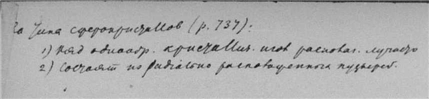 2а Типа сферокристаллов (p. 737):
1) Ряд однообр. кристаллич. игол располож. лучисто
2) Состоят из радіально расположенных пузырей.